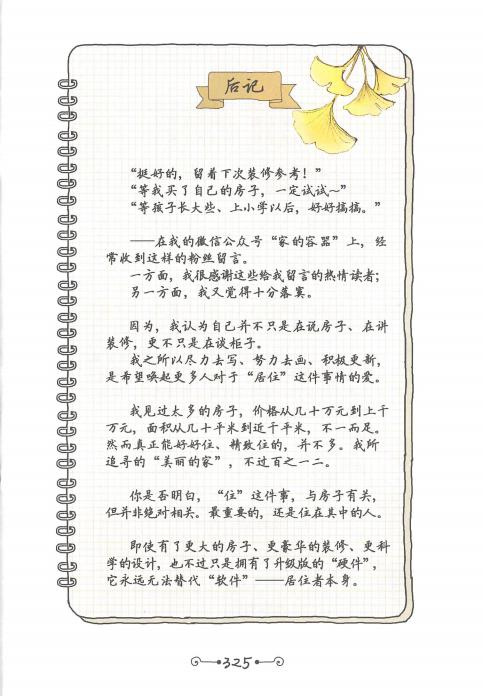 后记
“挺好的，留着下次装修参考！”
“等我买了自己的房子，一定试试~”
“等孩子长大些、上小学以后，好好搞搞。”
——在我的微信公众号“家的容器”上，经
常收到这样的粉丝留言。
一方面，我很感谢这些给我留言的热情读者；
另一方面，我又觉得十分落寞。
因为，我认为自己并不只是在说房子、在讲
装修，更不只是在谈柜子。
我之所以尽力去写、努力去画、积极更新，
是希望唤起更多人对于“居住”这件事情的爱。
我见过太多的房子，价格从几十万元到上千
万元，面积从几十平米到近千平米，不一而足。
然而真正能好好住、精致住的，并不多。我所
追寻的“美丽的家”，不过百之一二。
你是否明白，“住”这件事，与房子有关，
但并非绝对相关。最重要的，还是住在其中的人。
即使有了更大的房子、更豪华的装修、更科
学的设计，也不过只是拥有了升级版的“硬件”，
它永远无法替代“软件”——居住者本身。
325